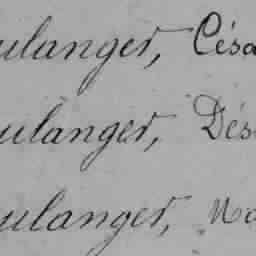 ulanger, Césa
ulanger, Dés
ulanger, No